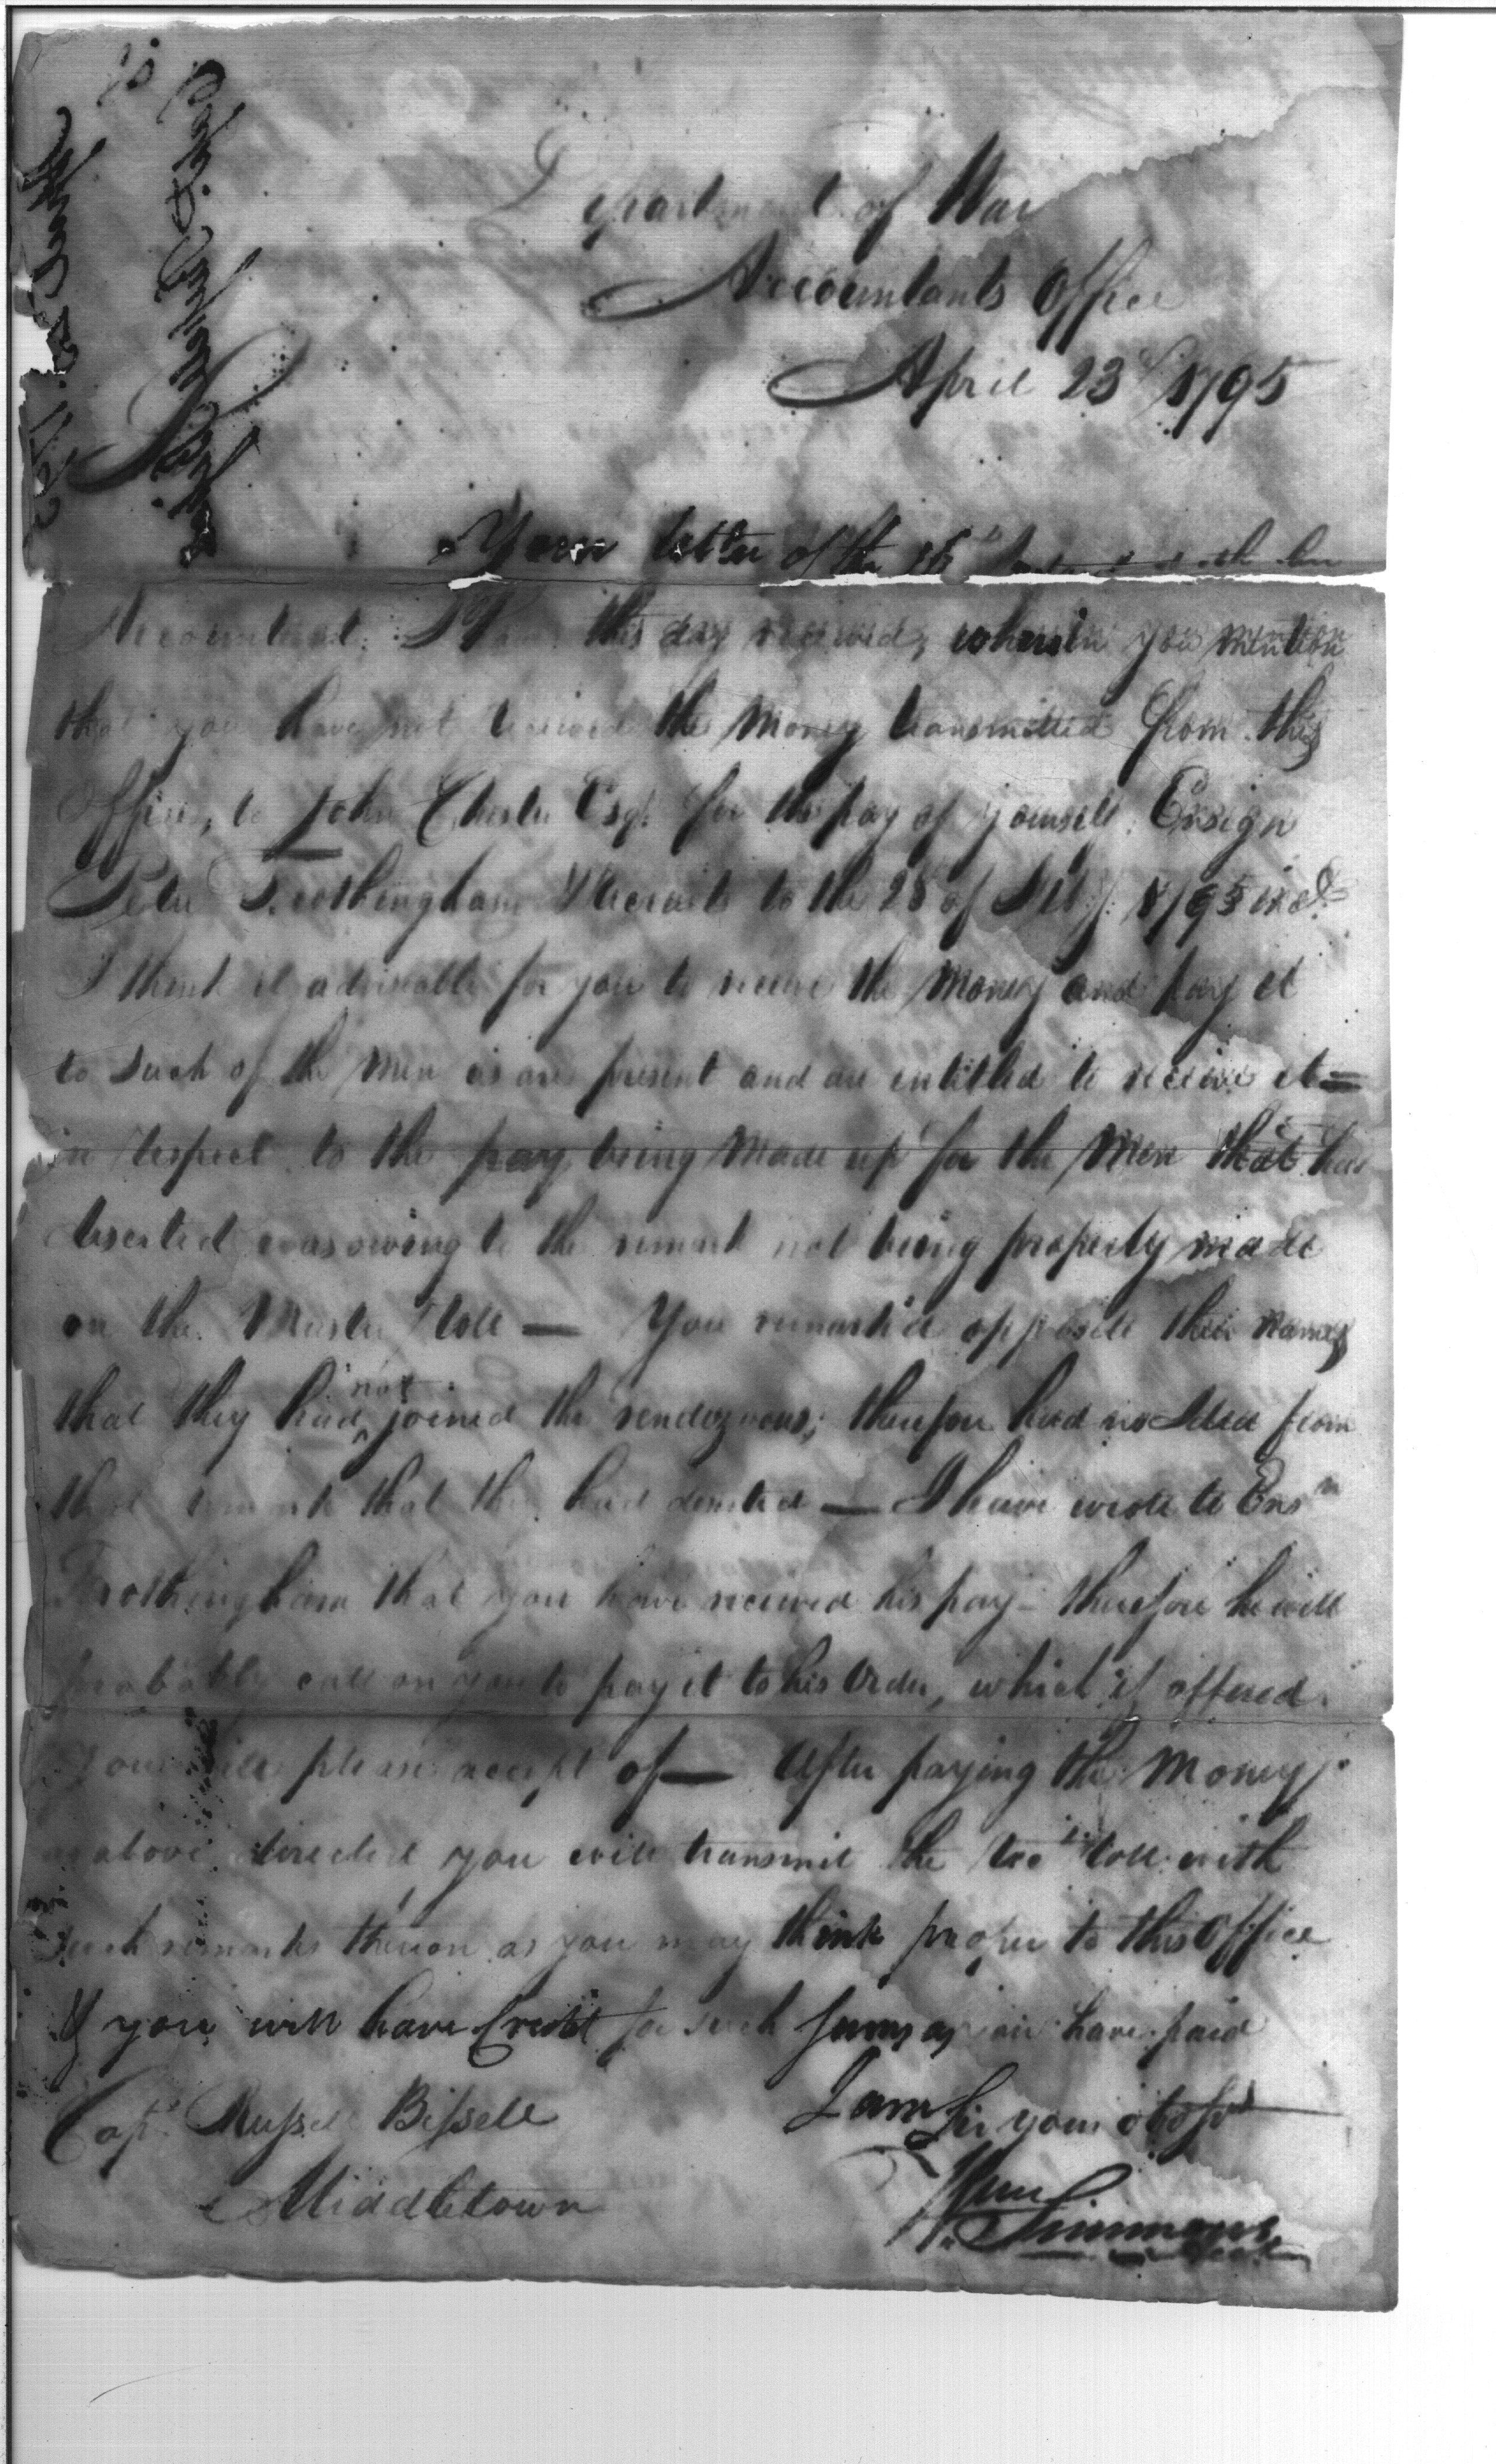 Department of War
Accountants Office
April 23d 1795
Your letter of the 16th
Accountant. I have this day received, wherein you mention
that you have not received the Money transmitted from this
Office, to John Chester Esqr. for the pay of yourself, Ensign
Peter Frothingham & Recruits to the 28 of Feby. 1795 incl.
I think it adviseable for you to receive the Money and pay it
to such of the Men as are present and are entitled to receive it =
in respect to the pay being Made up for the Men that has
deserted was owing to the remark not being properly made
on the Muster Roll — You remarked opposite their Names
that they had not joined the rendezvous; therefore had no Idea from
that remark that they had deserted — I have wrote to Ensn
Frothingham that you have received his pay - therefore he will
probably call on you to pay it to his Order, which if offered
you will please accept of — After paying the Money
as above directed you will transmit the roll with
such remarks thereon as you may think proper to this Office
& you will have Credit for such sums as you have paid
I am Sir your obdt Sevt
Capt. Russell Bissell
Middletown
Wm Simmons